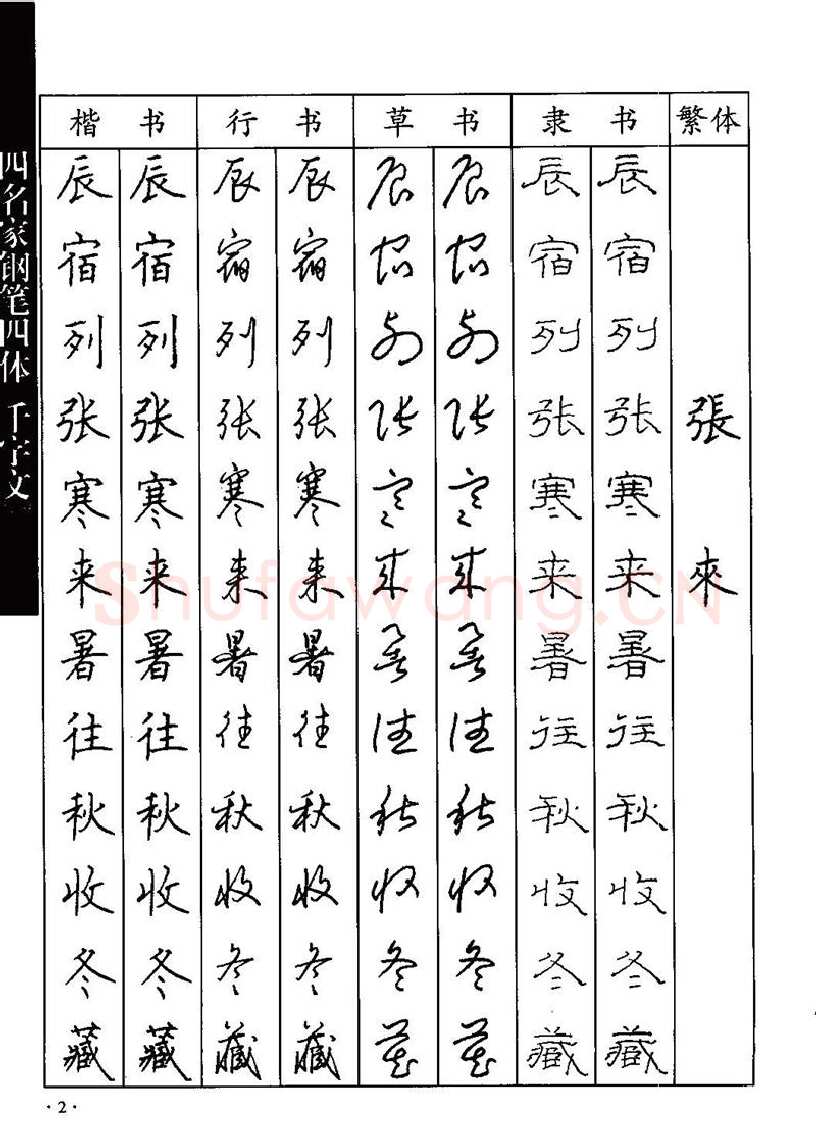 四名家钢笔四体 千字文
楷 书 行 书 草 书 隶 书 繁体
辰 辰 辰 辰 辰 辰 辰 辰
宿 宿 宿 宿 宿 宿 宿 宿
列 列 列 列 列 列 列 列
张 张 张 张 张 张 张 张 張
寒 寒 寒 寒 寒 寒 寒 寒
来 来 来 来 来 来 来 来 來
暑 暑 暑 暑 暑 暑 暑 暑
往 往 往 往 往 往 往 往
秋 秋 秋 秋 秋 秋 秋 秋
收 收 收 收 收 收 收 收
冬 冬 冬 冬 冬 冬 冬 冬
藏 藏 藏 藏 藏 藏 藏 藏
Shufawang.CN
·2·